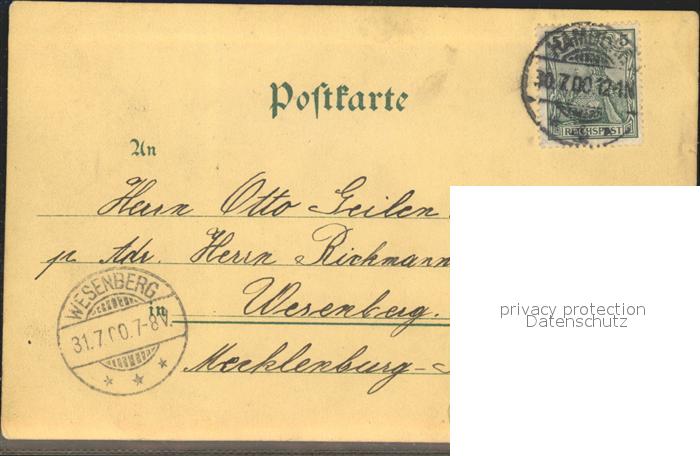 HAMBURG
30.7.00.12-1N
5
REICHSPOST
Postkarte
An
Herrn Otto Geilen
p. Adr. Herrn Rickmann
in Wesenberg.
Mecklenburg-
WESENBERG
31.7.00.7-8V.
privacy protection
Datenschutz